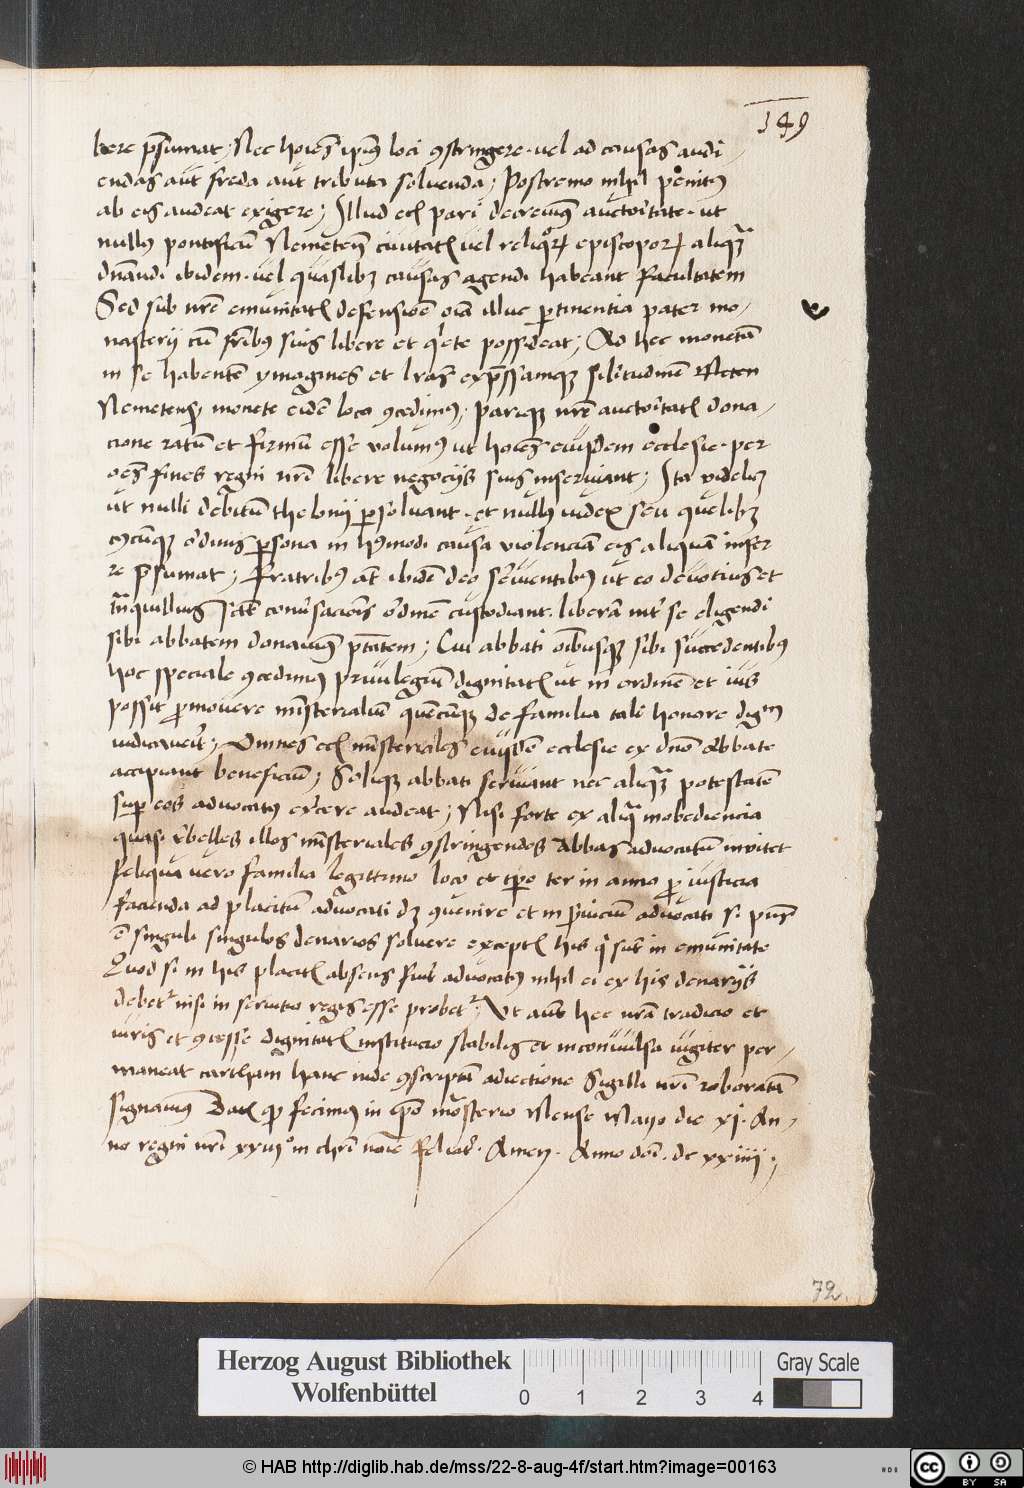 149
bere p̄sumat; Nec hoīes ip̄ius loci ꝯstringere. vel ad causas audi-
endas aut freda aut tributa soluenda; Postremo nihil penitꝰ
ab eis audeat exigere; Illud etiā pari decreuimꝰ auctoritate. ut
nullus pontificū Nemetens̄ ciuitatꝭ vel reliquoꝝ episcopoꝝ aliqua
dn̄andi ibidem. vel quaslibꝫ causas agendi habeant facultatem
Sed sub nr̄e emunitatꝭ defensiōe oīa illuc ꝑtinentia pater mo-
nasterij cū fr̄ibꝰ suis libere et q'ete possideat; Ad hec monetā
in se habentē ymagines et lr̄as exp̄ssamqꝫ sil'itudinē
Nemetensis monete eidē loco ꝯcedimꝰ; pariqꝫ nr̄e auctoritatꝭ dona-
cione ratū et firmū esse volumꝰ ut hoīes eiusdem ecclesie. per
oēs fines regni nr̄i libere negocijs suis inseruiant; Ita videlicꝫ
ut nulli debitū thelonij ꝑsoluant. et nullus iudex seu quelibꝫ
cuiuscūqꝫ ordinis ꝑsona in hꝰmodi causa violenciā eis aliquā infer
re p̄sumat; Fratribꝰ aūt ibidē deo seruientibꝰ ut eo deuotius et
tn̄quillius sācte conuersacionis ordinē custodiant. liberā int' se eligendi
sibi abbatem donauimꝰ p̄tatem; Cui abbati oībusqꝫ sibi succedentibꝰ
hoc speciale ꝯcedimꝰ priuilegiū dignitatꝭ ut in ordinē et ius
possit ꝓmouere ministerialiū quēcūqꝫ de familia tali honore dignū
iudicauerit; Omnes etiā ministeriales eiusdē ecclesie ex dn̄o Abbate
accipiant beneficiū; Soliqꝫ abbati seruiant nec aliquā potestatē
sup eos aduocatꝰ exercere audeat; Nisi forte ex aliqua inobediencia
quasi rebelles illos ministeriales ꝯstringendos Abbas aduocatū inuitet
Reliqua vero familia legittimo loco et tp̄e ter in anno ꝓ iusticia
facienda ad placitū aduocati dꝫ ꝯuenire et in seruiciū aduocati si p̄ns
ē singuli singulos denarios soluere exceptꝭ his qui sūt in emunitate
Quod si in his placitꝭ absens fuit aduocatꝰ nihil ei ex his denarijs
debet' nisi in seruitio regis esse probet'; Ut aūt hec nr̄a tradicio et
iuris et ꝯcesse dignitatꝭ institucio stabilis et inconuulsa iugiter per-
maneat cartham hanc inde ꝯscriptā adiectione Sigilli nr̄i roboratā
signauimꝰ Datꝭ qd fecimꝰ in ip̄o monasterio Mense Mayo die xj. An-
no regni nr̄i xxuj° in chr̄i noīe felicit'. Amen. Anno dn̄i. dc xxiiij.
72.
Herzog August Bibliothek
Wolfenbüttel
0 1 2 3 4
Gray Scale
© HAB http://diglib.hab.de/mss/22-8-aug-4f/start.htm?image=00163
cc BY SA